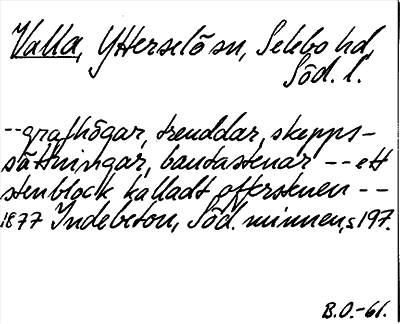 Valla, Ytterselö sn, Selebo hd,
Söd. l.
--grafhögar, treuddar, skepps-
sättningar, bautastenar -- ett
stenblock kalladt offerstenen --
1877 Indebetou, Söd. minnen, s 197.
B.O.-61.